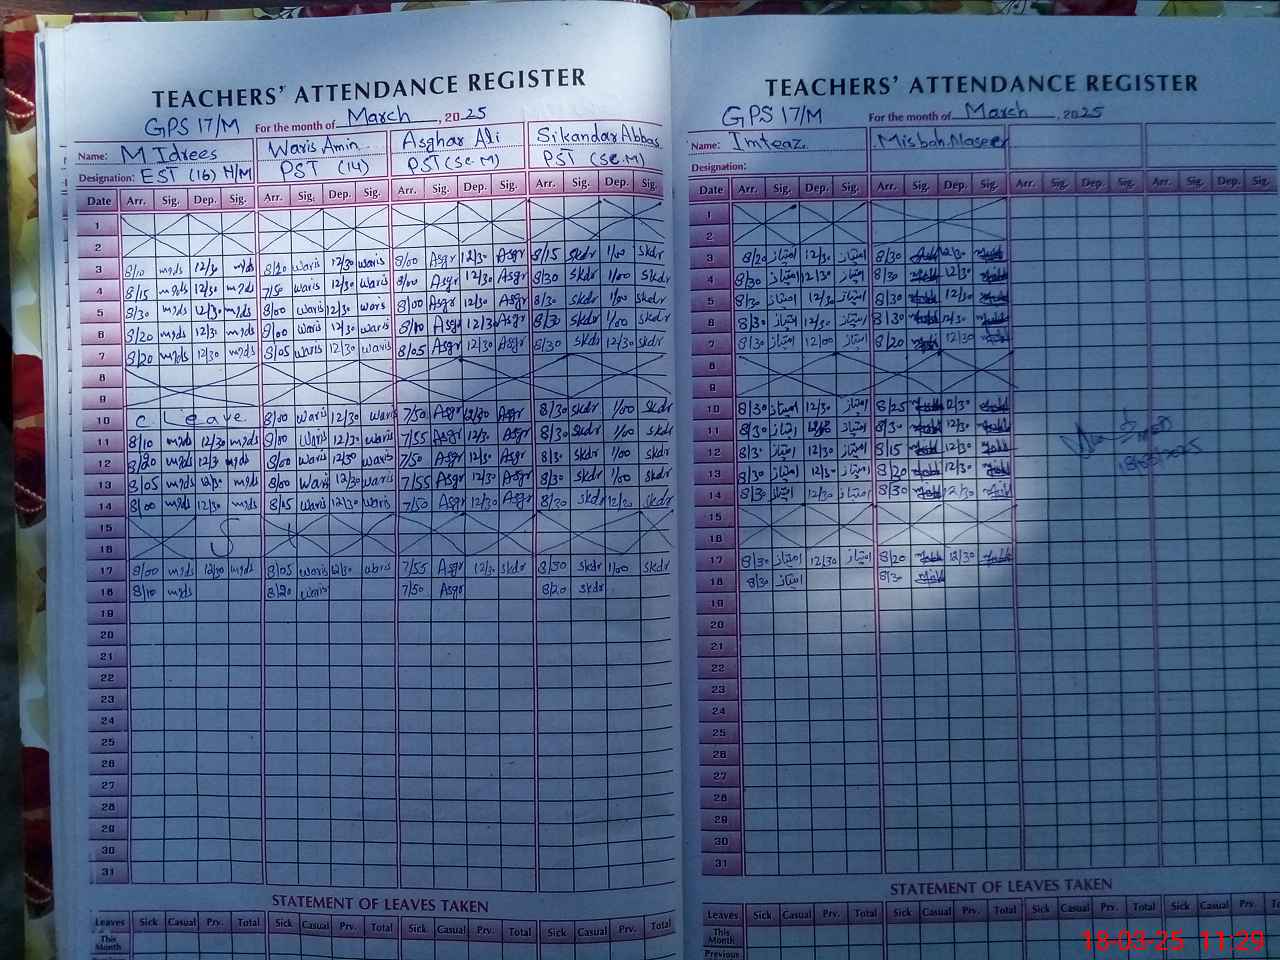 TEACHERS' ATTENDANCE REGISTER
GPS 17/M For the month of March, 2025
Name: M Idrees Waris Amin Asghar Ali Sikandar Abbas
Designation: EST (16) H/M PST (14) PST (Sc.M) PST (Sc.M)
Date Arr. Sig. Dep. Sig. Arr. Sig. Dep. Sig. Arr. Sig. Dep. Sig. Arr. Sig. Dep. Sig.
1
2
3 8/10 mgds 12/30 mgds 8/20 waris 12/30 waris 8/00 Asgr 12/30 Asgr 8/15 skdr 1/00 skdr
4 8/15 mgds 12/30 mgds 7/50 waris 12/30 waris 8/00 Asgr 12/30 Asgr 8/30 skdr 1/00 skdr
5 8/30 mgds 12/30 mgds 8/00 waris 12/30 waris 8/00 Asgr 12/30 Asgr 8/30 skdr 1/00 skdr
6 8/20 mgds 12/30 mgds 8/00 waris 12/30 waris 8/10 Asgr 12/30 Asgr 8/30 skdr 1/00 skdr
7 8/20 mgds 12/30 mgds 8/05 waris 12/30 waris 8/05 Asgr 12/30 Asgr 8/30 skdr 12/30 skdr
8
9
10 C Leave 8/00 waris 12/30 waris 7/50 Asgr 12/30 Asgr 8/30 skdr 1/00 skdr
11 8/10 mgds 12/30 mgds 8/00 waris 12/30 waris 7/55 Asgr 12/30 Asgr 8/30 skdr 1/00 skdr
12 8/20 mgds 12/30 mgds 8/00 waris 12/30 waris 7/50 Asgr 12/30 Asgr 8/30 skdr 1/00 skdr
13 8/05 mgds 12/30 mgds 8/00 waris 12/30 waris 7/55 Asgr 12/30 Asgr 8/30 skdr 1/00 skdr
14 8/00 mgds 12/30 mgds 8/05 waris 12/30 waris 7/50 Asgr 12/30 Asgr 8/30 skdr 12/30 skdr
15
16 S
17 8/00 mgds 12/30 mgds 8/05 waris 12/30 waris 7/55 Asgr 12/30 skdr 8/30 skdr 1/00 skdr
18 8/10 mgds 8/20 waris 7/50 Asgr 8/20 skdr
19
20
21
22
23
24
25
26
27
28
29
30
31
STATEMENT OF LEAVES TAKEN
Leaves Sick Casual Prv. Total Sick Casual Prv. Total Sick Casual Prv. Total Sick Casual Prv. Total
This Month
TEACHERS' ATTENDANCE REGISTER
GPS 17/M For the month of March, 2025
Name: Imteaz Misbah Naseer
Designation:
Date Arr. Sig. Dep. Sig. Arr. Sig. Dep. Sig. Arr. Sig. Dep. Sig. Arr. Sig. Dep. Sig.
1
2
3 8/20 امتیاز 12/30 امتیاز 8/30 12/30
4 8/30 امتیاز 12/30 امتیاز 8/30 12/30
5 8/30 امتیاز 12/30 امتیاز 8/30 12/30
6 8/30 امتیاز 12/30 امتیاز 8/30 12/30
7 8/30 امتیاز 12/00 امتیاز 8/20 12/30
8
9
10 8/30 امتیاز 12/30 امتیاز 8/25 12/30
11 8/30 امتیاز امتیاز 8/30 12/30
12 8/30 امتیاز 12/30 امتیاز 8/15 12/30
13 8/30 امتیاز 12/30 امتیاز 8/20 12/30
14 8/30 امتیاز 12/30 امتیاز 8/30 12/30
15
16
17 8/30 امتیاز 12/30 امتیاز 8/20 12/30
18 8/30 امتیاز 8/30
19
20
21
22
23
24
25
26
27
28
29
30
31
STATEMENT OF LEAVES TAKEN
Leaves Sick Casual Prv. Total Sick Casual Prv. Total Sick Casual Prv. Total Sick Casual Prv.
This Month
Previous
18-03-25 11:29